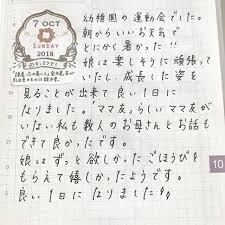 7 OCT
SUNDAY
2018
幼稚園の運動会でした。
朝からいいお天気で
とにかく暑かった!!
娘は楽しそうに頑張って
いたし、成長した姿を
見ることが出来て良い1日に
なりました。「ママ友」らしいママ友が
いない私も数人のお母さんとお話も
できて良かったです。
娘はずっと欲しかったごほうびを
もらえて嬉しかったようです。
良い1日になりました
10